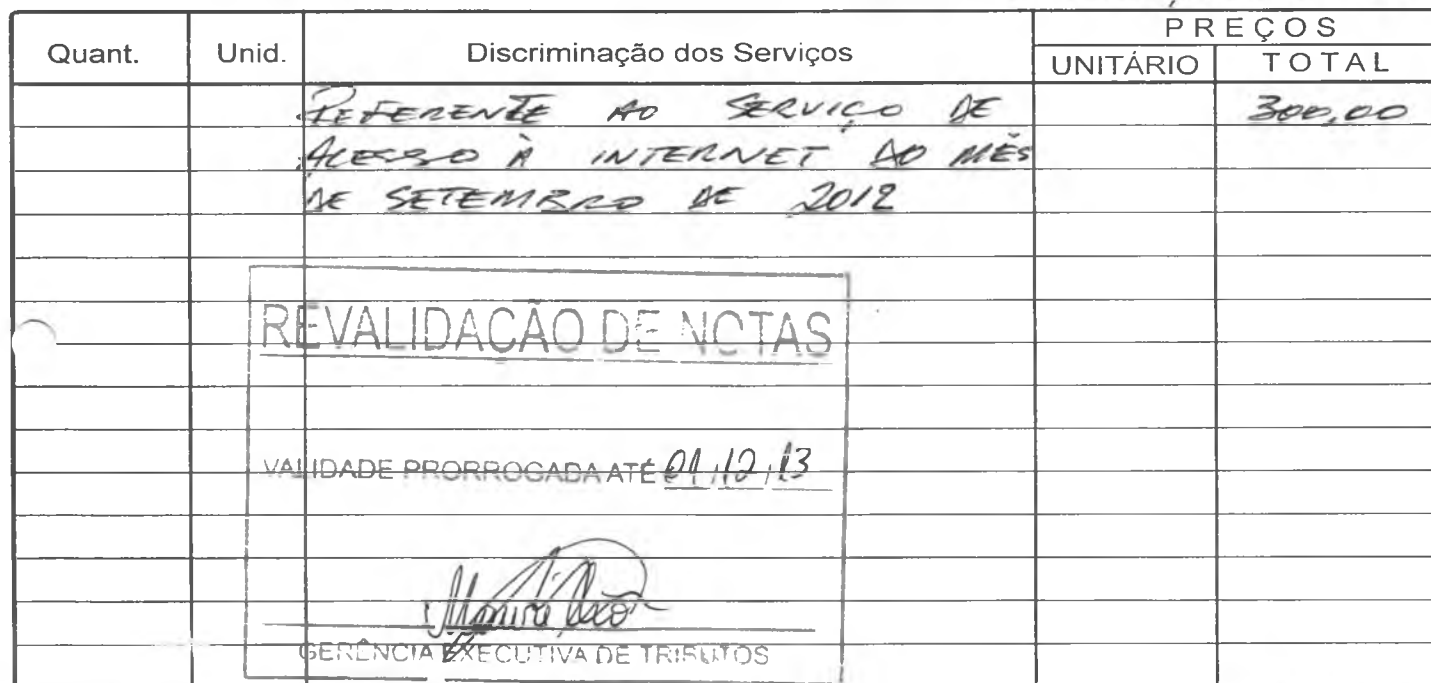 Quant. Unid. Discriminação dos Serviços PREÇOS
UNITÁRIO TOTAL
REFERENTE AO SERVIÇO DE 300,00
ACESSO À INTERNET DO MÊS
DE SETEMBRO DE 2012
REVALIDAÇÃO DE NOTAS
VALIDADE PRORROGADA ATÉ 01/12/13
GERÊNCIA EXECUTIVA DE TRIBUTOS